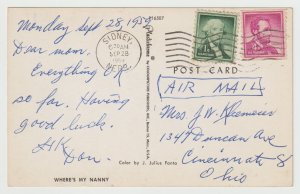 Monday Sept 28, 195
Dear Mom,
Everything OK
so far. Having
good luck.
Don.
WHERE'S MY NANNY
Color by J. Julius Fanta
SIDNEY
AM
SEP 28
NEBR.
POST CARD
AIR MAIL
Mrs J. W. Kloemeier
1349 Duncan Ave
Cincinnati 8
Ohio